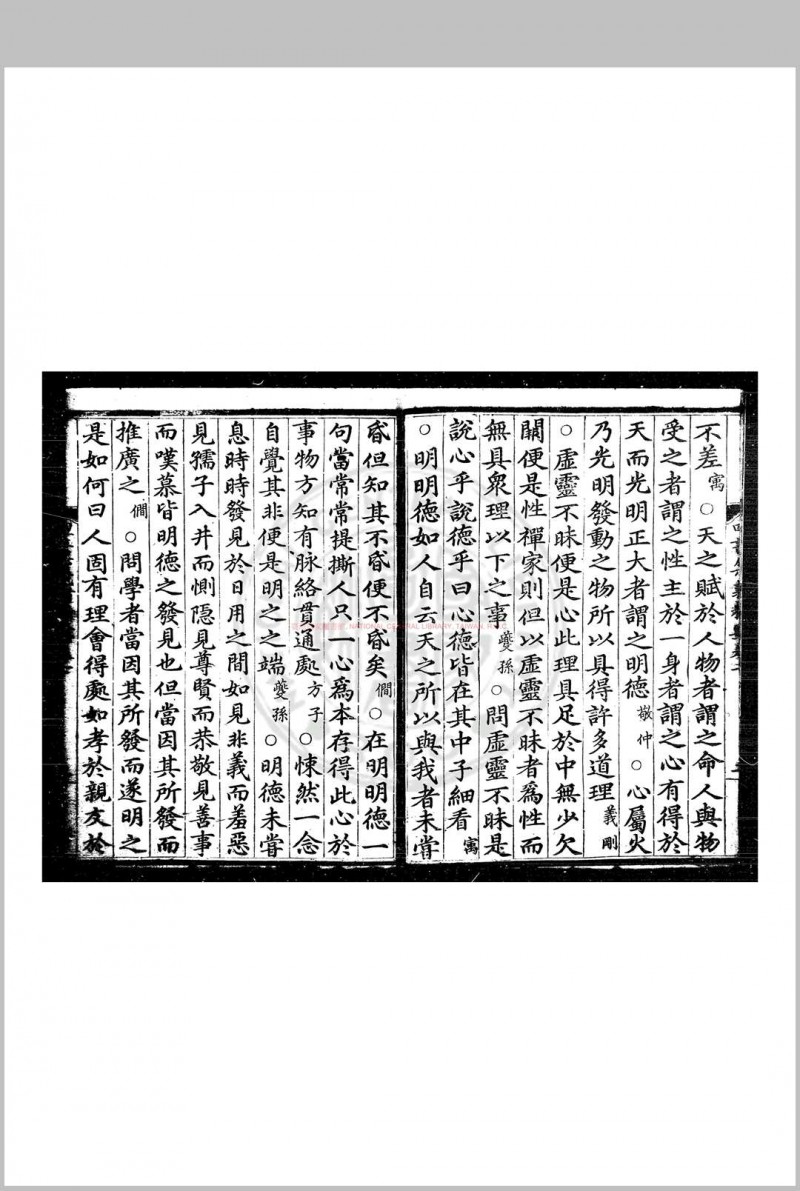 不差寓○天之賦於人物者謂之命人與物
受之者謂之性主於一身者謂之心有得於
天而光明正大者謂之明德敬仲○心屬火
乃光明發動之物所以具得許多道理義剛
○虛靈不昧便是心此理具足於中無少欠
闕便是性禪家則但以虛靈不昧者爲性而
無具衆理以下之事夔孫○問虛靈不昧是
說心乎說德乎曰心德皆在其中子細看寓
○明明德如人自云天之所以與我者未嘗
昏但知其不昏便不昏矣僩○在明明德一
句當常常提撕人只一心爲本存得此心於
事物方知有脉絡貫通處方子○悚然一念
自覺其非便是明之之端夔孫○明德未嘗
息時時發見於日用之間如見非義而羞惡
見孺子入井而惻隠見尊賢而恭敬見善事
而嘆慕皆明德之發見也但當因其所發而
推廣之僩○問學者當因其所發而遂明之
是如何曰人固有理會得處如孝於親友於
NATIONAL CENTRAL LIBRARY, TAIWAN, R.O.C.